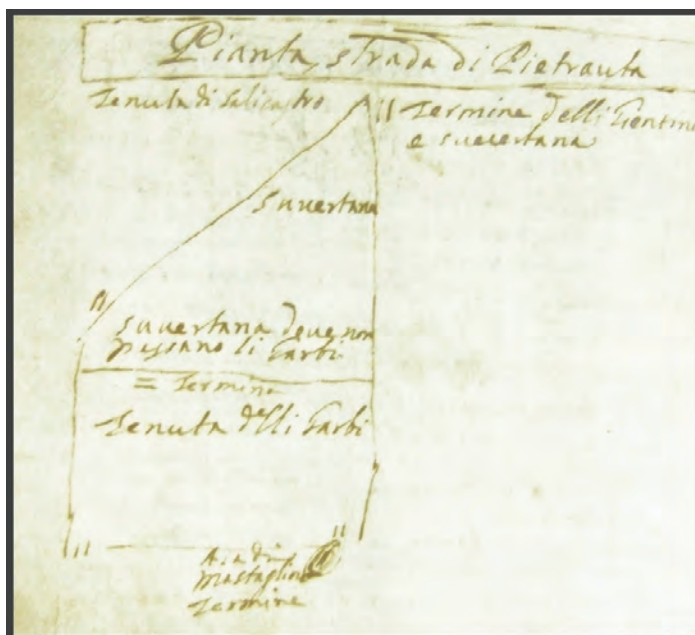 Pianta, strada di Pietrauta
Tenuta di Salicastro
Termine delli Trentin
e suvertana
Suvertana
Suvertana deue non
passano li Garbi
= Termine
Tenuta delli Garbi
Aia di
Mastaglino
Termine